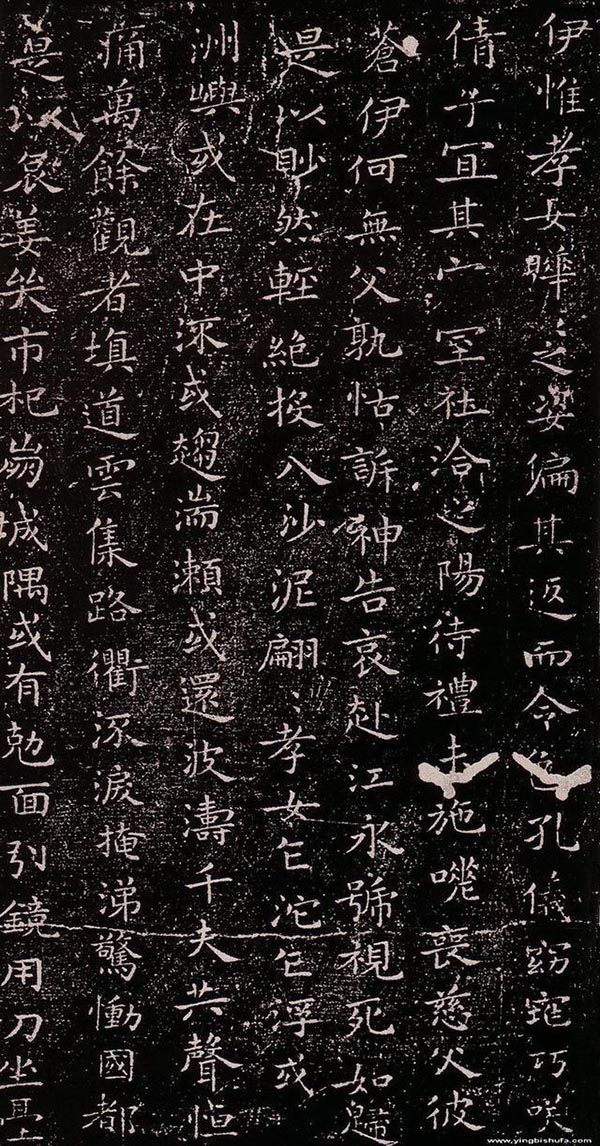 伊惟孝女曄〻之姿偏其返而令色孔儀窈窕巧咲
倩兮宜其家室在洽之陽待禮未施嗟喪慈父彼
蒼伊何無父孰怙訴神告哀赴江永號視死如歸
是以眇然輕絕投入沙泥翩〻孝女乍沉乍浮或
洲嶼或在中流或趨湍瀨或還波濤千夫共聲悼
痛萬餘觀者填道雲集路衢流淚掩涕驚慟國都
是以哀姜哭市杞崩城隅或有剋面引鏡用刀坐臺
www.yingbishufa.com